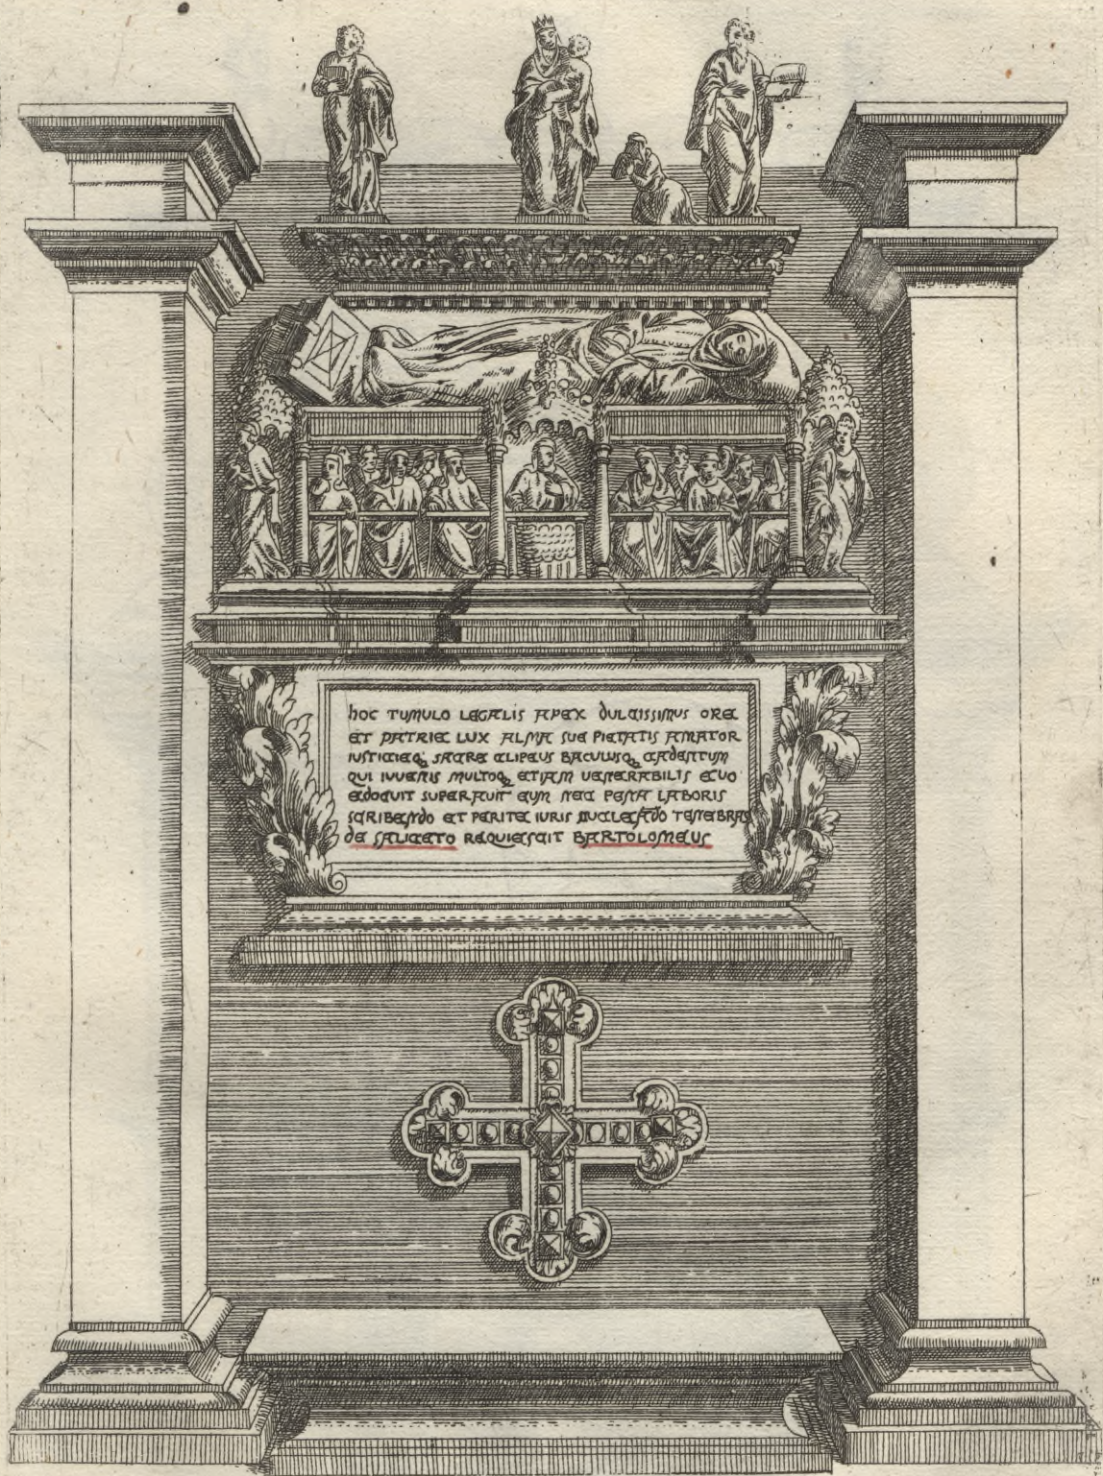 hOC TUMULO LEGALIS APEX DULCISSIMUS ORE
ET PATRIE LUX ALMA SUE PIETATIS AMATOR
IUSTICIEQ SACRE CLIPEUS BACULUSQ CADENTUM
QUI IUVENIS MULTOQ ETIAM VENERABILIS EVO
EDOCUIT SUPERAUIT EUM NEC PENA LABORIS
SCRIBENDO ET PERITE IURIS NUCLEANDO TENEBRAS
DE SALICETO REQUIESCIT BARTOLOMEUS